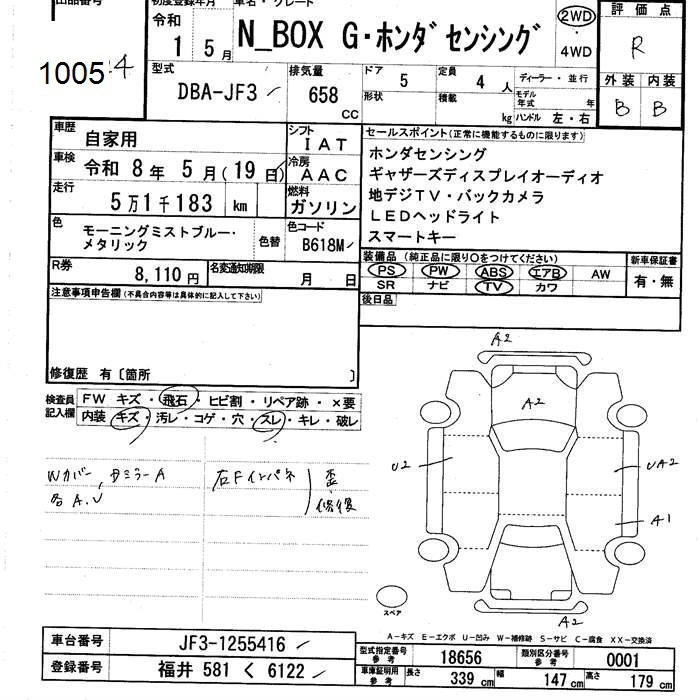 出品番号 初度登録年月 車名・グレード
令和 N_BOX G・ホンダセンシング 2WD 評価点
1 5月 4WD R
1005 4
型式 DBA-JF3 排気量 658 CC
ドア 5 定員 4 人 ディーラー・並行
形状 積載 kg モデル年式 年
ハンドル 左・右
外装 内装
B B
車歴 自家用 シフト IAT
車検 令和 8年 5月(19日) 冷房 AAC
走行 5万1千183 km 燃料 ガソリン
色 モーニングミストブルー・メタリック 色替 色コード B618M
R券 8,110円 名変通知期限 月 日
セールスポイント(正常に機能するものに限ります)
ホンダセンシング
ギャザーズディスプレイオーディオ
地デジTV・バックカメラ
LEDヘッドライト
スマートキー
装備品(純正品に限り○をつけてください) 新車保証書
PS PW ABS エアB AW 有・無
SR ナビ TV カワ
後日品
注意事項申告欄(不具合内容等は具体的に記入して下さい)
修復歴 有〔箇所 〕
検査員記入欄 FW キズ・飛石・ヒビ割・リペア跡・×要
内装 キズ・汚レ・コゲ・穴・スレ・キレ・破レ
Wカバー、ドミラーA 右Fインパネ 歪
各A.U 修後
A2
A2
U2 UA2
A1
スペア A2
A-キズ E-エクボ U-凹み W-補修跡 S-サビ C-腐食 XX-交換済
車台番号 JF3-1255416
登録番号 福井 581 く 6122
型式指定番号 参考 18656 類別区分番号 参考 0001
車庫証明用 参考 長さ 339 cm 幅 147 cm 高さ 179 cm